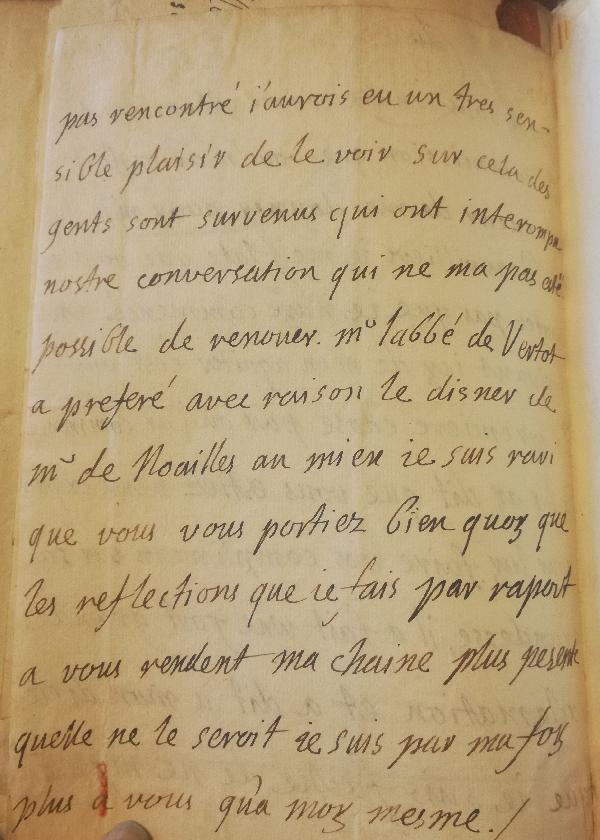 pas rencontré i'aurois eu un tres sen-
sible plaisir de le voir sur cela des
gents sont survenus qui ont interompu
nostre conversation qui ne ma pas esté
possible de renouer. mr labbé de Vertot
a preferé avec raison le disner de
mr de Noailles au mien ie suis ravi
que vous vous portiez bien quoy que
les reflections que ie fais par raport
a vous rendent ma chaine plus pesente
quelle ne le seroit ie suis par ma foy
plus a vous qu'a moy mesme./